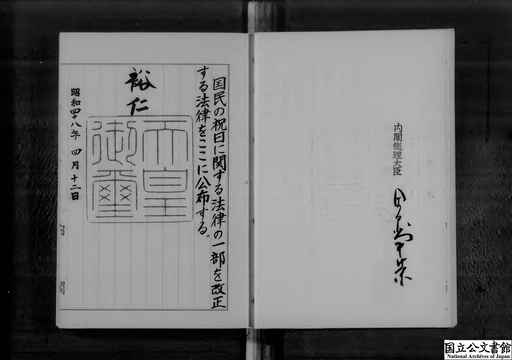 国民の祝日に関する法律の一部を改正
する法律をここに公布する。
裕仁
天皇御璽
昭和四十八年 四月十二日
内閣総理大臣
田中角榮
国立公文書館
National Archives of Japan